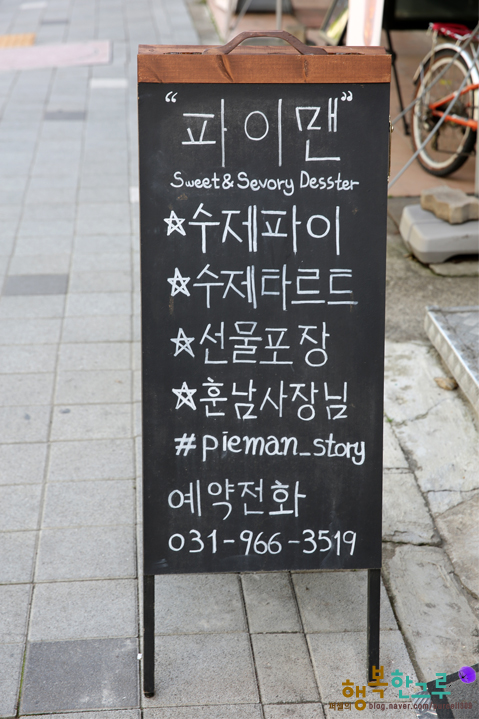 "파이맨"
Sweet & Sevory Desster
☆수제파이
☆수제타르트
☆선물포장
☆훈남사장님
#pieman_story
예약전화
031-966-3519
행복한그루